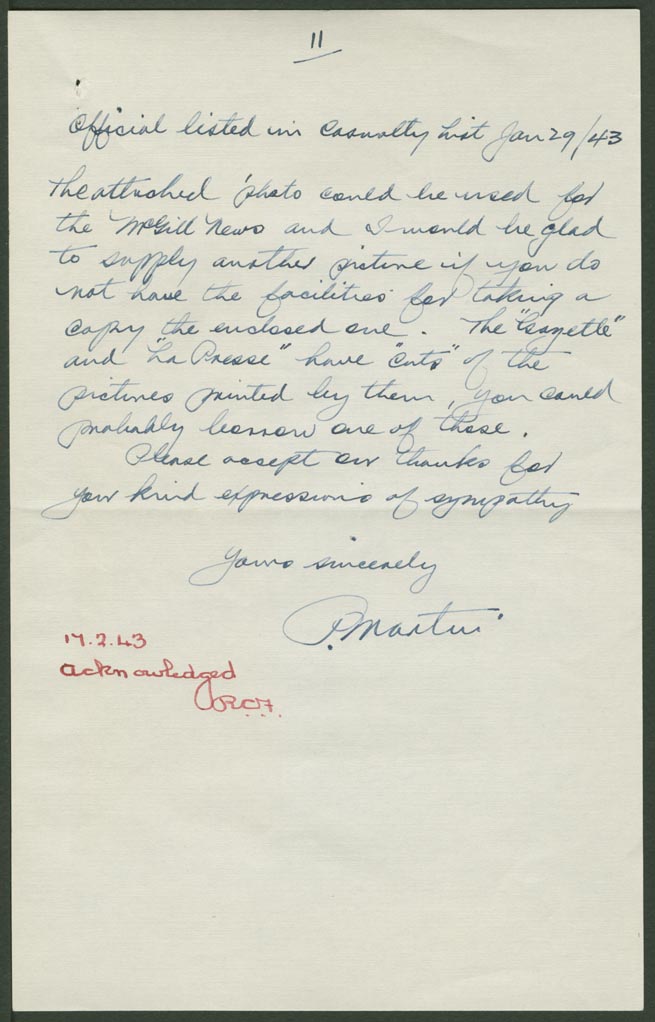 11
Official listed in Casualty List Jan 29/43
The attached photo could be used for
the McGill News and I would be glad
to supply another picture if you do
not have the facilities for taking a
copy the enclosed one. The "Gazette"
and "La Presse" have "cuts" of the
pictures printed by them, you could
probably borrow one of those.
Please accept our thanks for
your kind expressions of sympathy
Yours sincerely
P. Martin
17.2.43
acknowledged